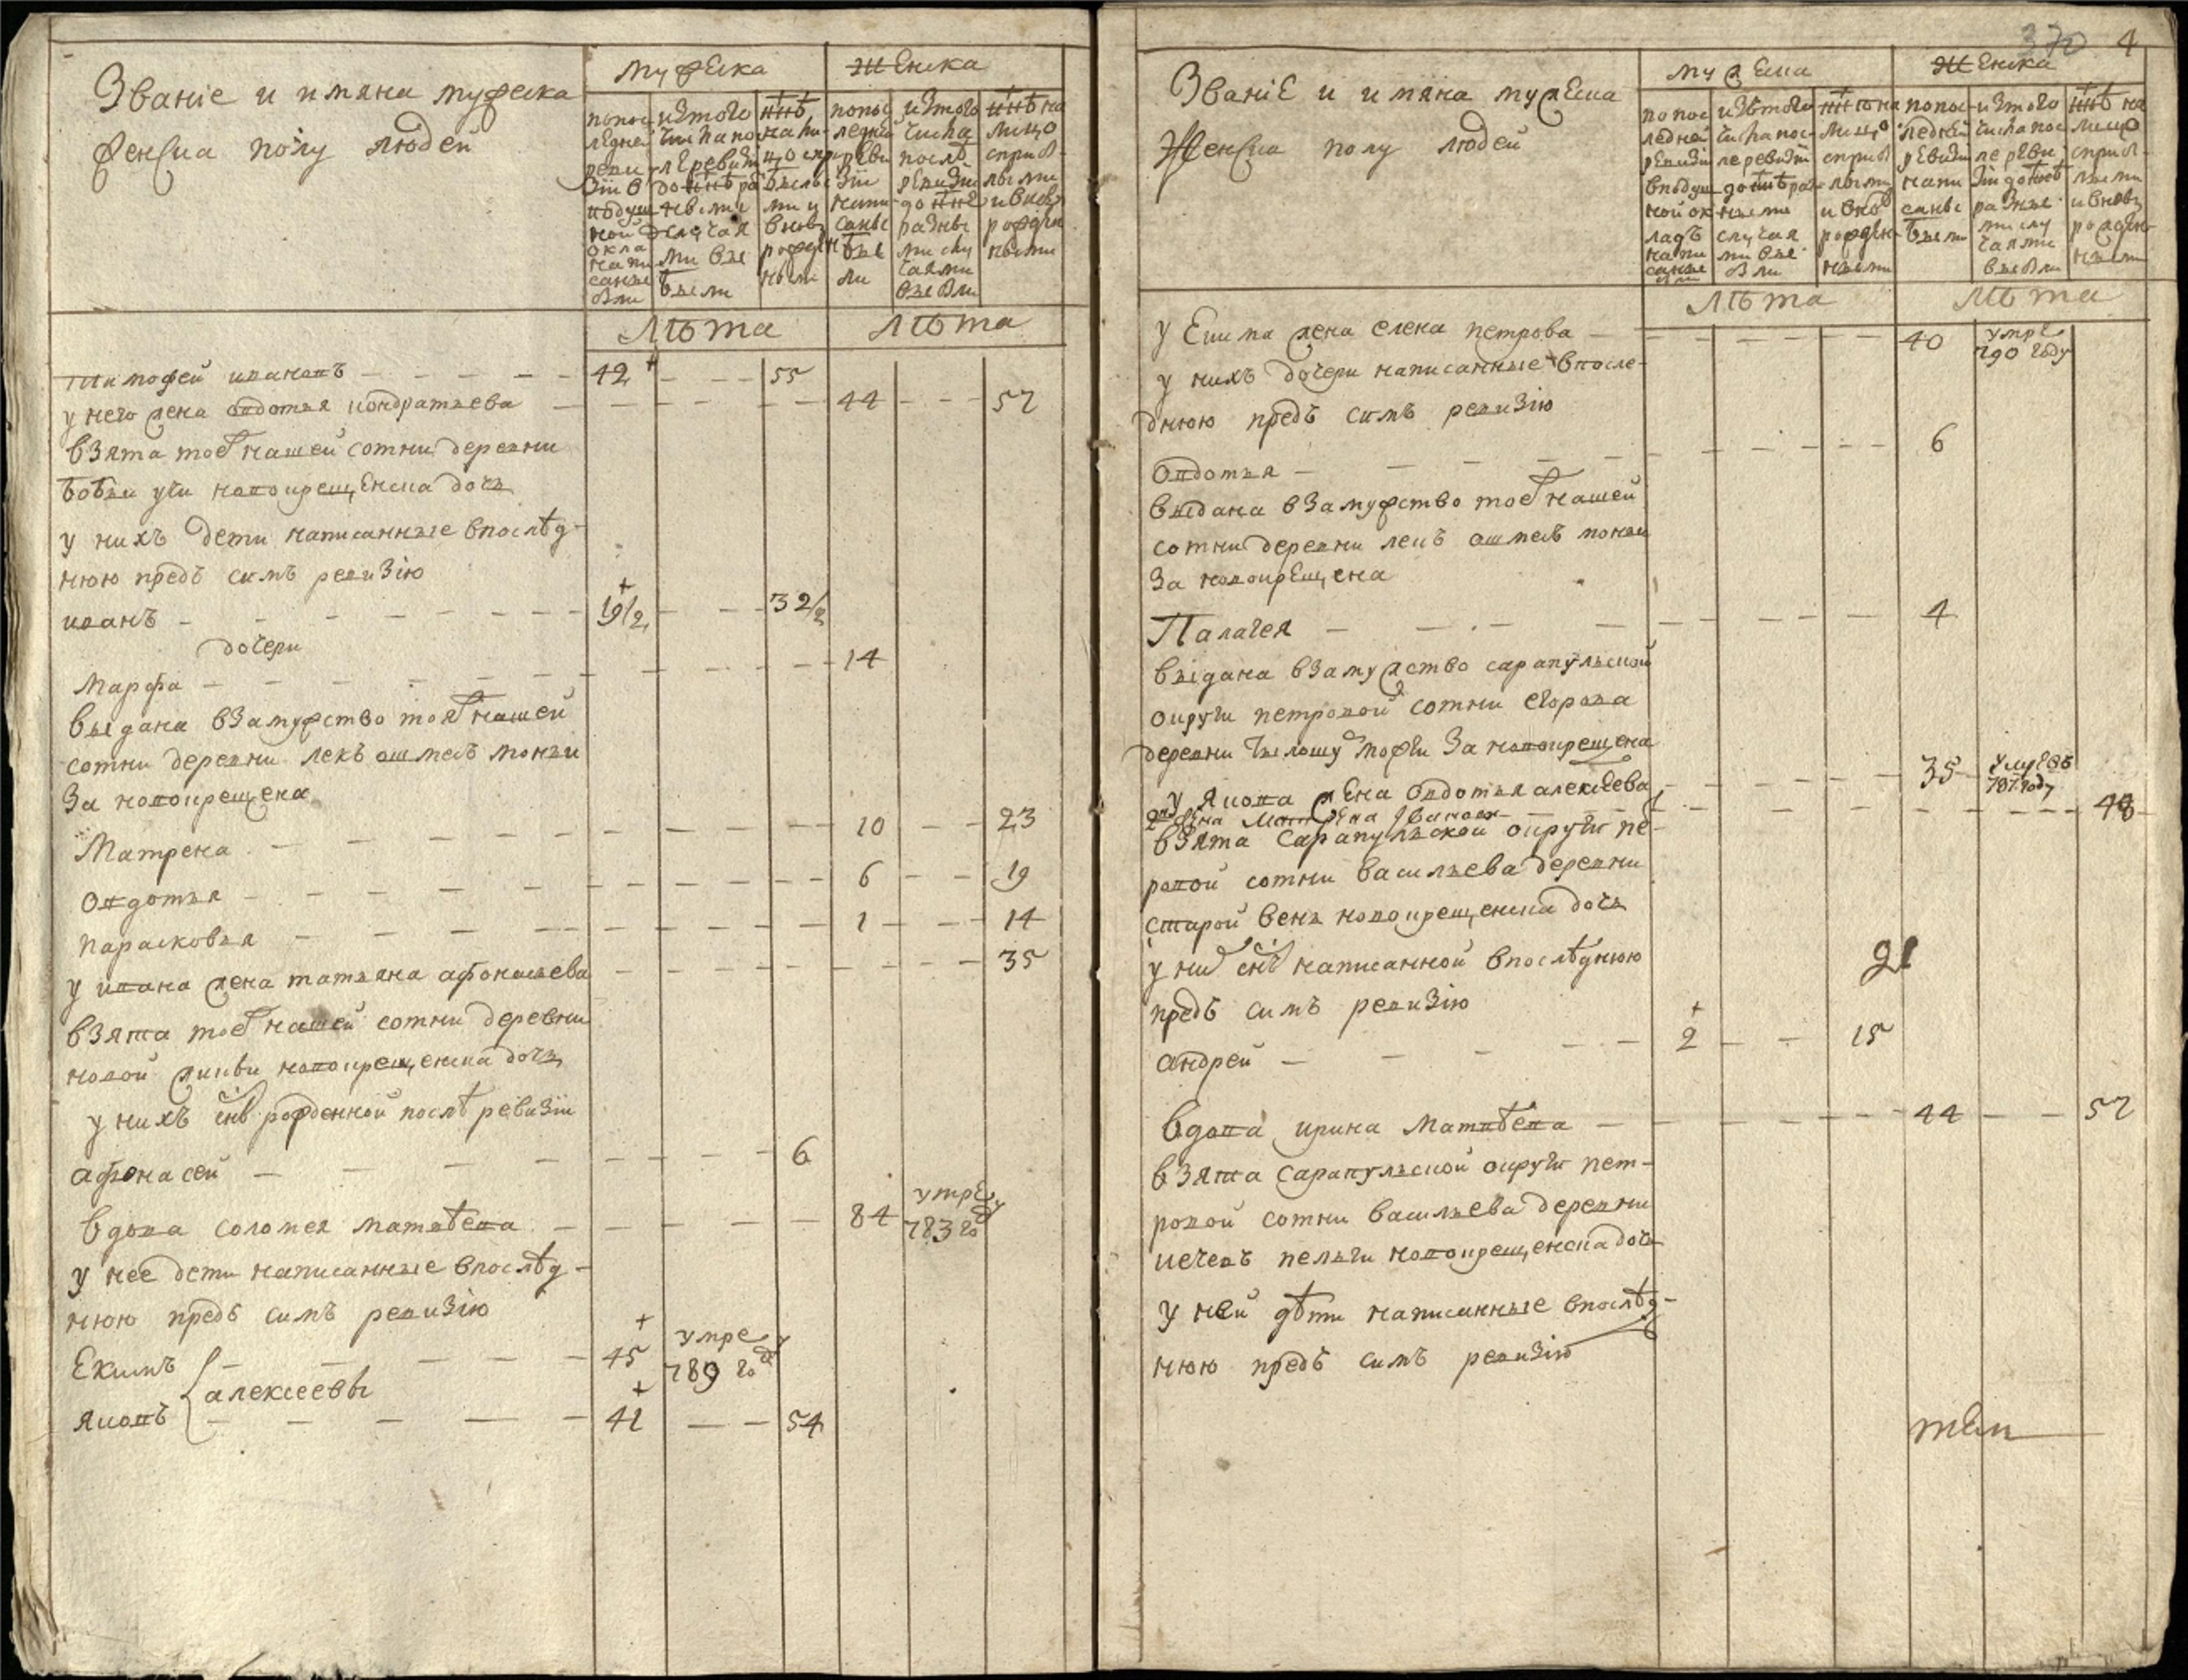 Званіе и имяна мужеска
женска полу людей
мужеска
женска
попос
ледней
реви
зіи в
подуш
ной
окла
напи
саные
были
изтого
числа по
сле ревизіи
до ннѣ ра
зными
случая
ми вы
были
ннѣ
на ли
цо спри
былы
ми и
вновь
рожден
ными
попос
ледней
реви
зіи
напи
саны
бы
ли
изтого
числа
послѣ
ревизіи
до ннѣ
разны
ми слу
чаями
выбыли
ннѣ на
лицо
сприб
лыми
и вновь
рожден
ными
лѣта
лѣта
тимофей ивановъ 42 55
у него жена овдотья кондратьева 44 57
взята тоѣ нашей сотни деревни
новокрещенска дочь
у нихъ дети написанные впослѣд-
нюю предъ симъ ревизію
иванъ 19/2 32/2
дочери
Марфа 14
выдана взамужство тоя нашей
сотни деревни лекъ
за новокрещена
Матрена 10 23
овдотья 6 19
парасковья 1 14
у ивана жена татьяна афонасьева 35
взята тоѣ нашей сотни деревни
новой новокрещенска дочь
у нихъ снъ рожденной послѣ ревизіи
афонасей 6
вдова соломея матвѣева 84 умре 783 году
у нее дети написанные впослѣд-
нюю предъ симъ ревизію
Екимъ 45 умре 789 году
алексеевы
яковъ 41 54
370 4
Званіе и имяна мужеска
Женска полу людей
мужеска
женска
попос
ледней
ревизіи
вподуш
ной ок
ладъ
напи
саные
были
изтого
числа пос
ле ревизіи
до ннѣ раз
ными
случая
ми вы
были
ннѣ на
лицо
сприб
лыми
и вно
рожден
ными
попос
ледней
ревизіи
напи
саные
были
изтого
числа пос
ле реви
зіи до ннѣ
разные
ми слу
чаями
выбыли
ннѣ на
лицо
сприб
лыми
и вновь
рожден
ными
лѣта
лѣта
у Екима жена елена петрова 40 умре 790 году
у нихъ дочери написанные впосле-
днюю предъ симъ ревизію
овдотья 6
выдана взамужство тоѣ нашей
сотни деревни лекъ
за новокрещена
Палагея 4
выдана взамужство сарапульской
округи петровой сотни егорова
деревни за новокрещена
у якова жена овдотья алексеева 35 умре въ 787 году
2я жена Матрена Иванова 48
взята Сарапульской округи пе-
ровой сотни васильева деревни
старой веня новокрещенска дочь
у ни снъ написанной впослѣднюю
предъ симъ ревизію
21
андрей 2 15
вдова ирина матвѣева 44 57
взята сарапульской округи пет-
ровой сотни васильева деревни
пельги новокрещенска дочь
у ней дѣти написанные впослѣд-
нюю предъ симъ ревизію